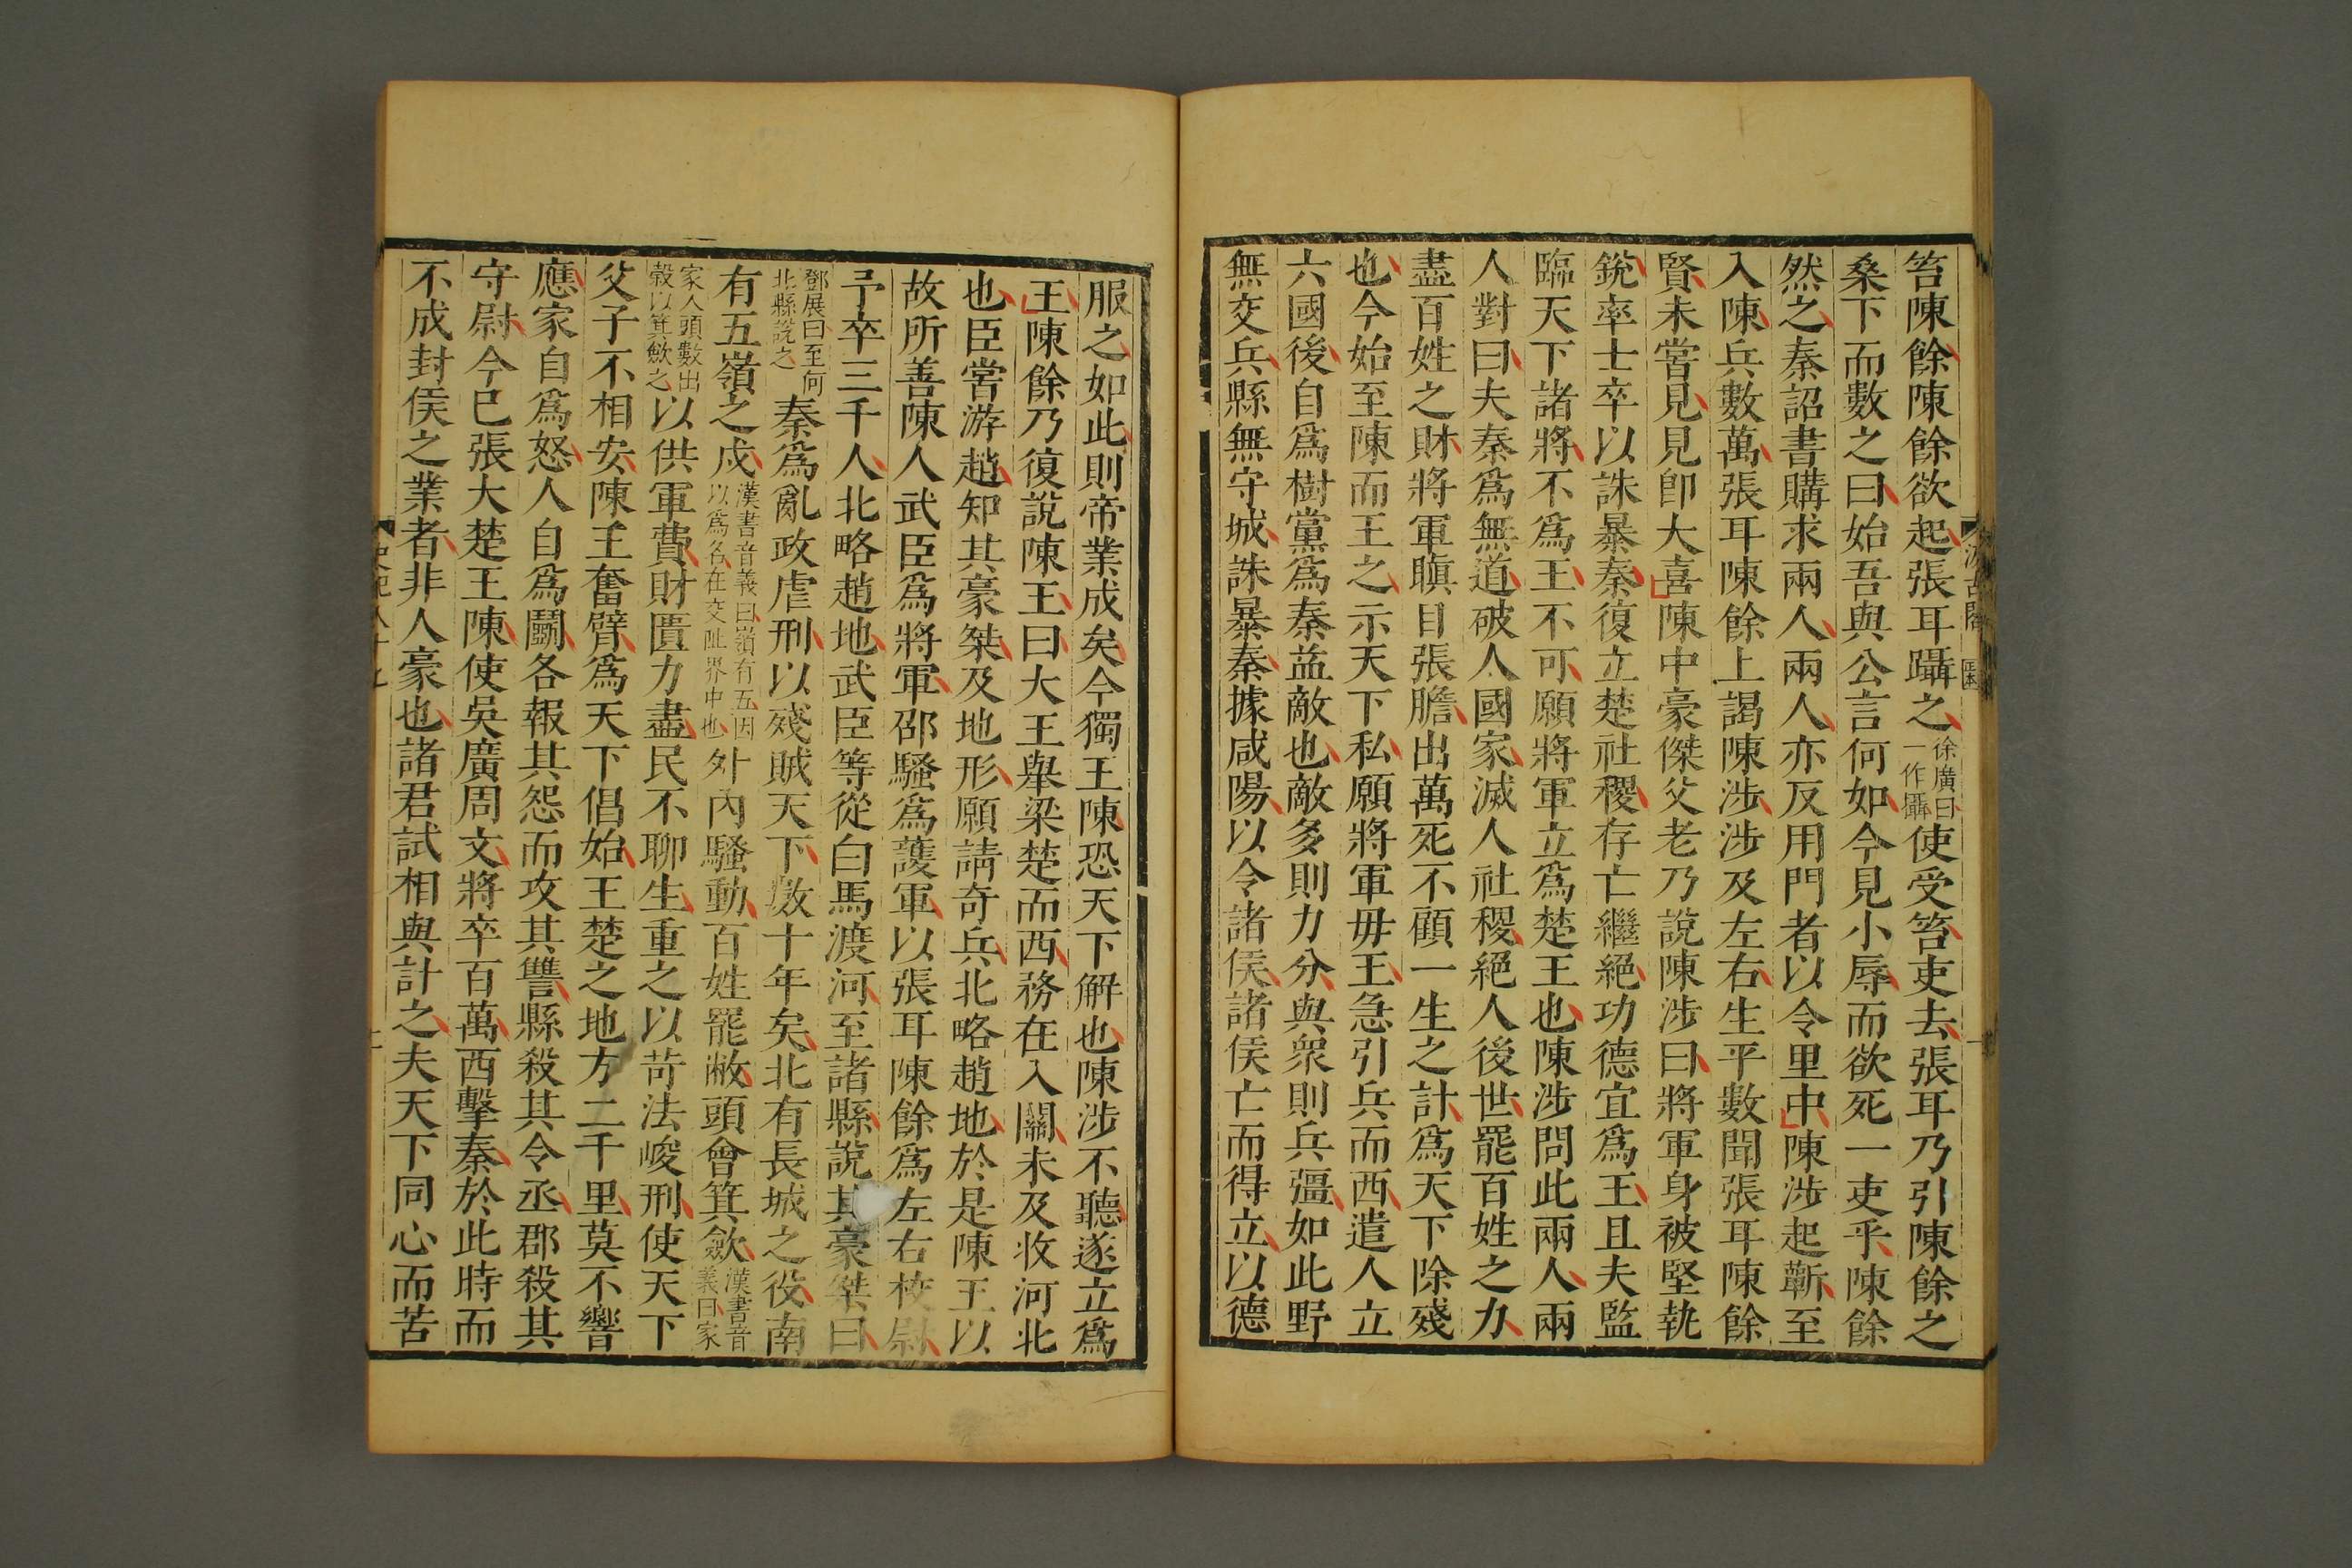 笞陳餘陳餘欲起張耳躡之徐廣曰一作攝使受笞吏去張耳乃引陳餘之
桑下而數之曰始吾與公言何如今見小辱而欲死一吏乎陳餘
然之秦詔書購求兩人兩人亦反用門者以令里中陳涉起蘄至
入陳兵數萬張耳陳餘上謁陳涉涉及左右生平數聞張耳陳餘
賢未嘗見見卽大喜陳中豪傑父老乃說陳涉曰將軍身被堅執
銳率士卒以誅暴秦復立楚社稷存亡繼絕功德宜爲王且夫監
臨天下諸將不爲王不可願將軍立爲楚王也陳涉問此兩人兩
人對曰夫秦爲無道破人國家滅人社稷絕人後世罷百姓之力
盡百姓之財將軍瞋目張膽出萬死不顧一生之計爲天下除殘
也今始至陳而王之示天下私願將軍毋王急引兵而西遣人立
六國後自爲樹黨爲秦益敵也敵多則力分與衆則兵彊如此野
無交兵縣無守城誅暴秦據咸陽以令諸侯諸侯亡而得立以德
服之如此則帝業成矣今獨王陳恐天下解也陳涉不聽遂立爲
王陳餘乃復說陳王曰大王舉梁楚而西務在入關未及收河北
也臣嘗游趙知其豪桀及地形願請奇兵北略趙地於是陳王以
故所善陳人武臣爲將軍邵騷爲護軍以張耳陳餘爲左右校尉
予卒三千人北略趙地武臣等從白馬渡河至諸縣說其豪桀曰
鄧展曰至何北縣說之秦爲亂政虐刑以殘賊天下數十年矣北有長城之役南
有五嶺之戍漢書音義曰嶺有五因以爲名在交阯界中也外內騷動百姓罷敝頭會箕斂漢書音義曰家
家人頭數出穀以箕斂之以供軍費財匱力盡民不聊生重之以苛法峻刑使天下
父子不相安陳王奮臂爲天下倡始王楚之地方二千里莫不響
應家自爲怒人自爲鬬各報其怨而攻其讐縣殺其令丞郡殺其
守尉今已張大楚王陳使吳廣周文將卒百萬西擊秦於此時而
不成封侯之業者非人豪也諸君試相與計之夫天下同心而苦